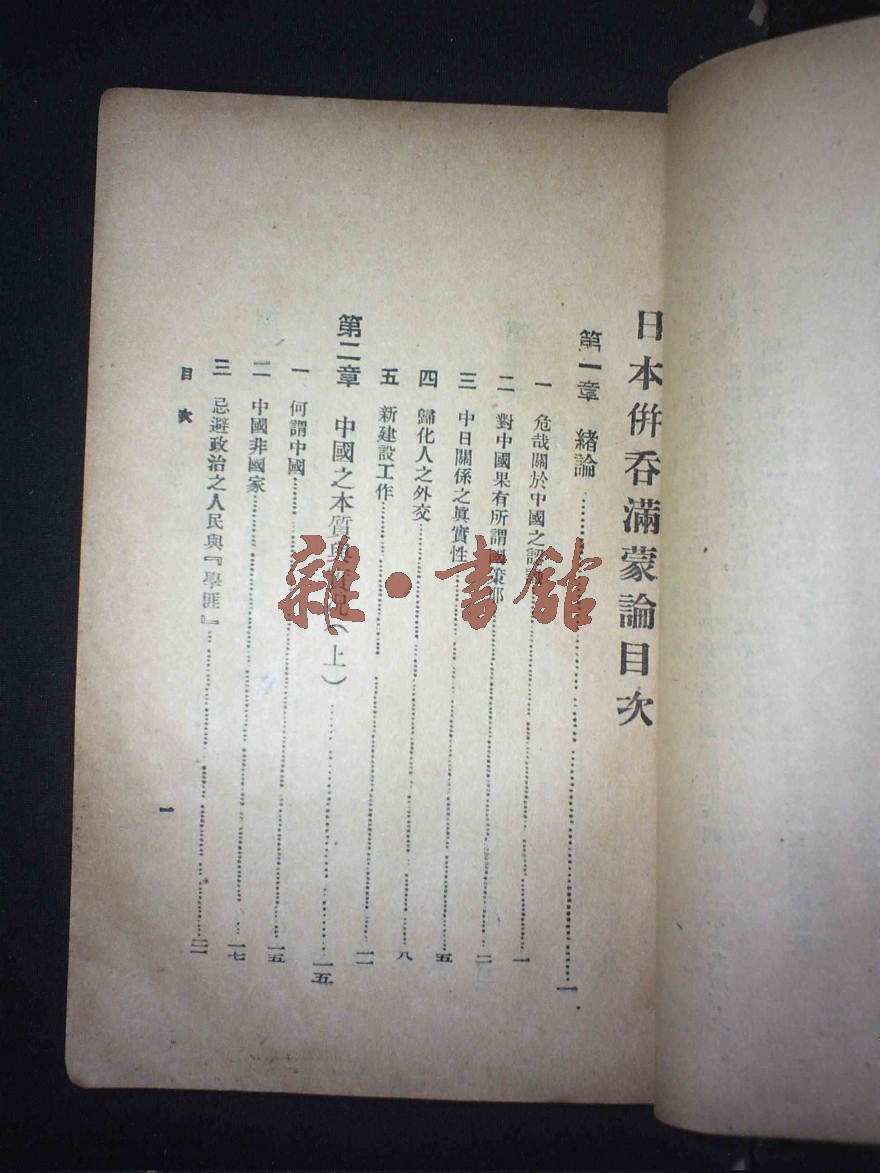 日本併吞滿蒙論目次
第一章 緒論……一
一 危哉關於中國之認識……一
二 對中國果有所謂國策耶……二
三 中日關係之眞實性……五
四 歸化人之外交……八
五 新建設工作……一一
第二章 中國之本質與實況(上)……一五
一 何謂中國……一五
二 中國非國家……一七
三 忌避政治之人民與『學匪』……二一
目次
一
雜·書館